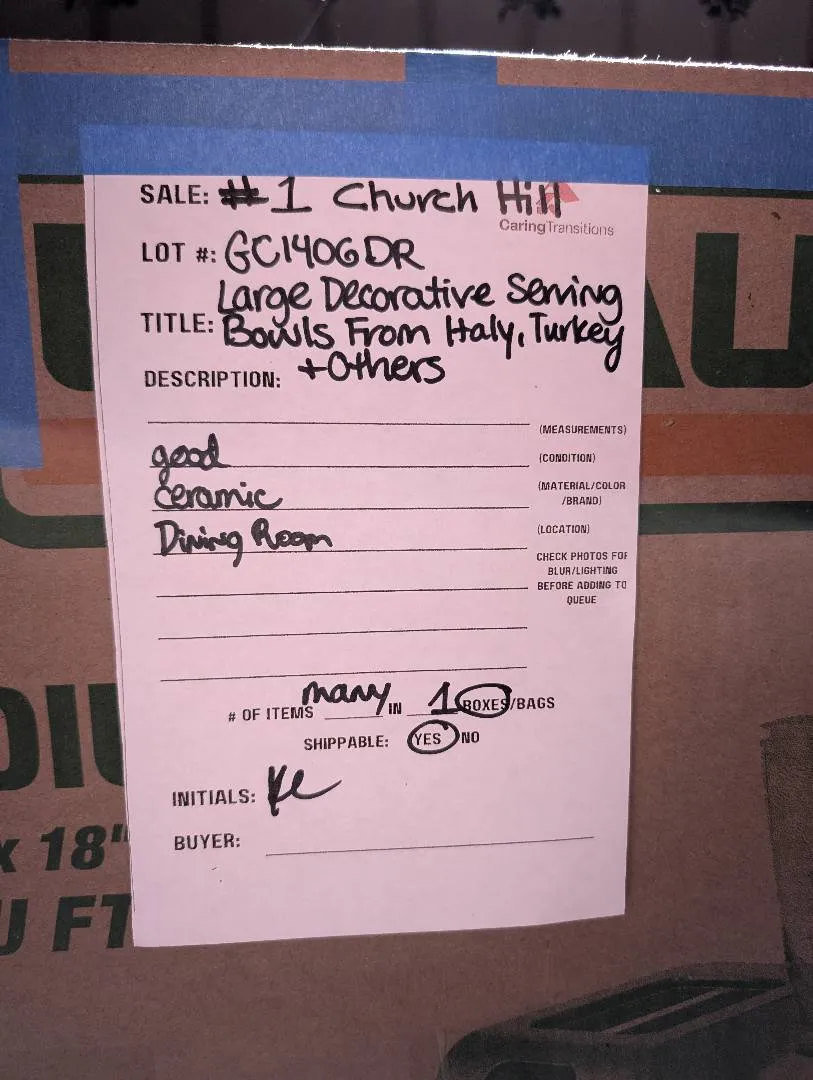 SALE: #1 Church Hill
CaringTransitions
LOT #: GC1406DR
Large Decorative Serving
TITLE: Bowls From Italy, Turkey
DESCRIPTION: + Others
(MEASUREMENTS)
good (CONDITION)
ceramic (MATERIAL/COLOR
/BRAND)
Dining Room (LOCATION)
CHECK PHOTOS FOR
BLUR/LIGHTING
BEFORE ADDING TO
QUEUE
# OF ITEMS many IN 1 BOXES/BAGS
SHIPPABLE: YES NO
INITIALS: Ke
BUYER:
x 18"
U FT